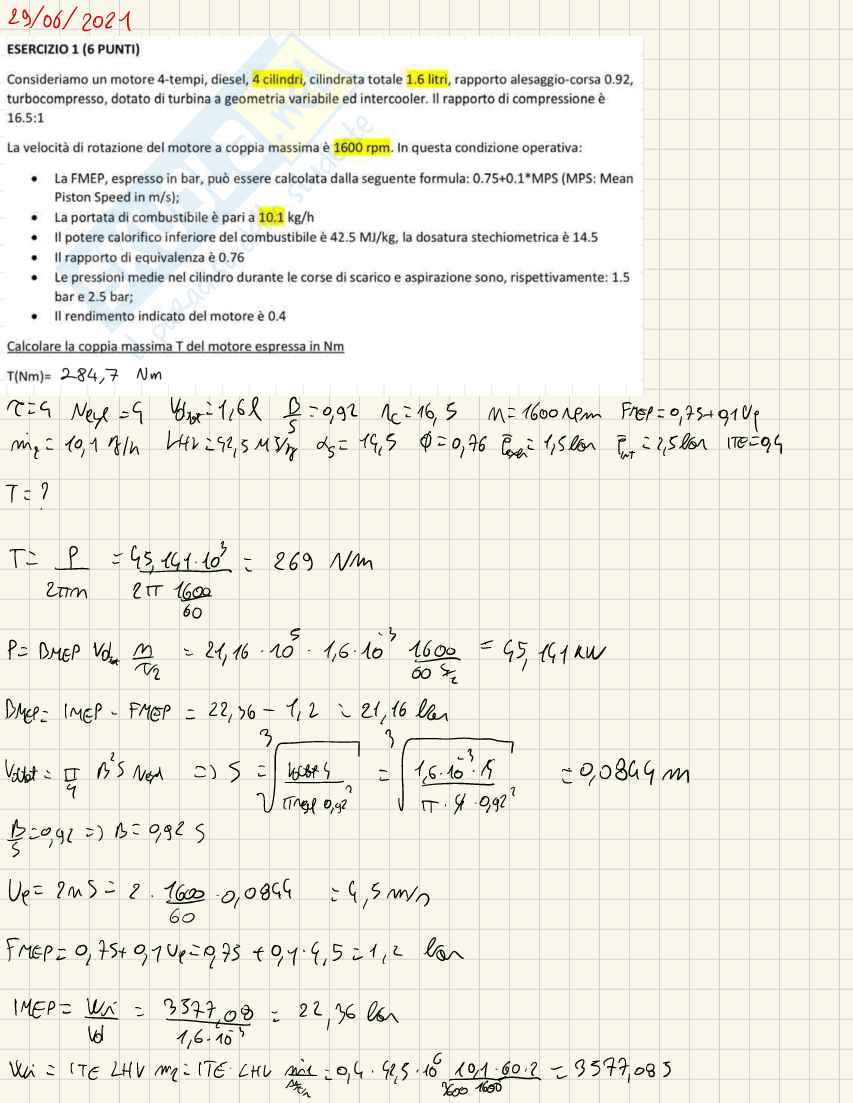 29/06/2021
ESERCIZIO 1 (6 PUNTI)
Consideriamo un motore 4-tempi, diesel, 4 cilindri, cilindrata totale 1.6 litri, rapporto alesaggio-corsa 0.92,
turbocompresso, dotato di turbina a geometria variabile ed intercooler. Il rapporto di compressione è
16.5:1
La velocità di rotazione del motore a coppia massima è 1600 rpm. In questa condizione operativa:
• La FMEP, espresso in bar, può essere calcolata dalla seguente formula: 0.75+0.1*MPS (MPS: Mean
Piston Speed in m/s);
• La portata di combustibile è pari a 10.1 kg/h
• Il potere calorifico inferiore del combustibile è 42.5 MJ/kg, la dosatura stechiometrica è 14.5
• Il rapporto di equivalenza è 0.76
• Le pressioni medie nel cilindro durante le corse di scarico e aspirazione sono, rispettivamente: 1.5
bar e 2.5 bar;
• Il rendimento indicato del motore è 0.4
Calcolare la coppia massima T del motore espressa in Nm
T(Nm)= 284,7 Nm
τ=4 Ncyl=4 Vdtot=1,6l B/S=0,92 rc=16,5 n=1600rpm FMEP=0,75+0,1Up
LHV=42,5 MJ/kg αs=14,5 Φ=0,76 =1,5bar =2,5bar ITE=0,4
T=?
T= P/2πn = 45,141·10³/2π 1600/60 = 269 Nm
P= BMEP Vdtot n/τ/2 = 21,16·10⁵·1,6·10⁻³ 1600/60 4/2 = 45,141kW
BMEP= IMEP - FMEP = 22,36 - 1,2 = 21,16 bar
Vdtot= π/4 B²S Ncyl => S = ³√ = ³√1,6·10⁻³·4/π·4·0,92² =0,0844 m
B/S=0,92 => B=0,92 S
Up= 2nS= 2·1600/60·0,0844 =4,5 m/s
FMEP= 0,75+0,1Up=0,75+0,1·4,5=1,2 bar
IMEP= Wi/Vd = 3577,08/1,6·10⁻³ = 22,36 bar
Wi = ITE LHV = ITE·LHV =0,4·42,5·10⁶ 10,1·60·2/3600 1600 =3577,08J